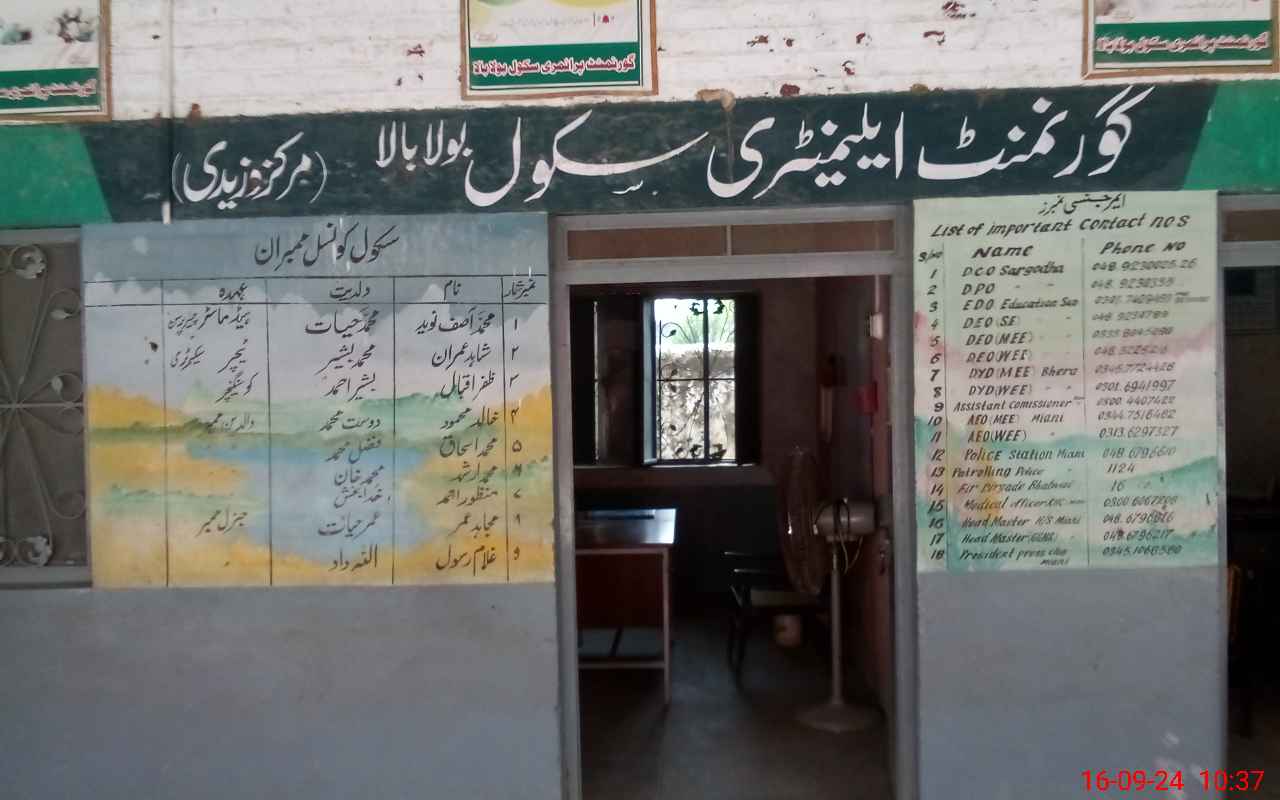 گورنمنٹ پرائمری سکول بولا بالا
گورنمنٹ پرائمری سکول بولا بالا
گورنمنٹ ایلیمنٹری سکول بولا بالا (مرکز زیدی)
سکول کونسل ممبران
نمبر شمار نام ولدیت عہدہ
۱ محمد آصف نوید محمد حیات ہیڈ ماسٹر چیئرپرسن
۲ شاہد عمران محمد بشیر ٹیچر سیکرٹری
۳ ظفر اقبال بشیر احمد
۴ خالد محمود دوست محمد والدین ممبر
۵ محمد اسحاق فضل محمد
محمد ارشد محمد خان
منظور احمد خدا بخش
مجاہد عمر عمر حیات جنرل ممبر
۹ غلام رسول اللہ داد
ایمرجنسی نمبرز
List of important Contact nos
S/no Name Phone No
1 DCO Sargodha 048.9230025.26
2 DPO
3 EDO Education
4 DEO (SE)
5 DEO (MEE)
6 DEO (WEE)
7 DYD (MEE) Bhera
8 DYD (WEE) 0301.6941997
9 Assistant Comissioner 0300.4407422
10 AEO (MEE) Miani 0344.7516462
11 AEO (WEE) 0313.6297327
12 Police Station Miani 048.6796610
13 Patrolling Police 1124
14 16
15 Medical officer
16 Head Master H/S Miani
17 Head Master 048.6796217
18 President press club miani 0345.1066560
16-09-24 10:37